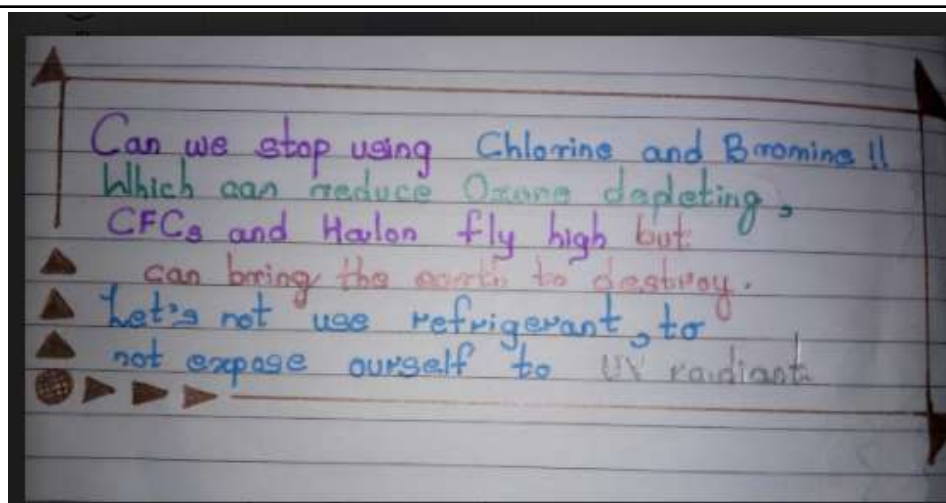 Can we stop using Chlorine and Bromine !!
Which can reduce Ozone depleting,
CFCs and Halon fly high but
can bring the earth to destroy.
Let's not use refrigerant, to
not expose ourself to UV radiant